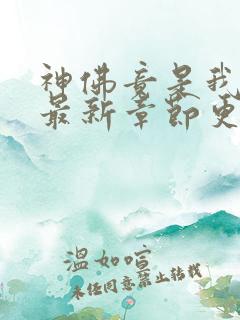 神佛竟是我
最新章節更
溫如喧
未任同意禁止轉載